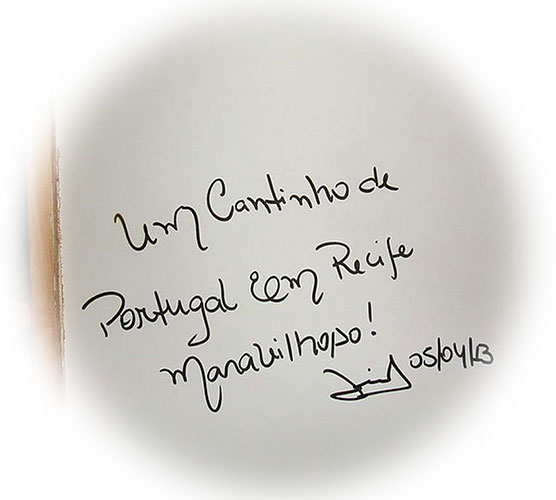 Um Cantinho de
Portugal em Recife
Maravilhoso!
05/04/13